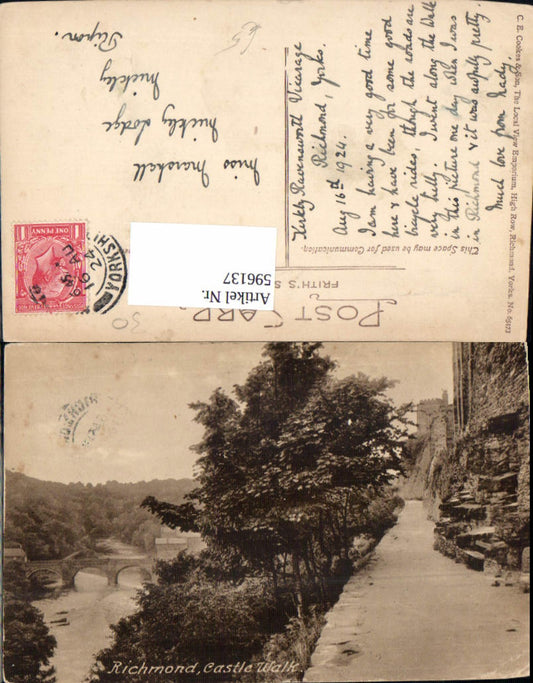 C. E. Cookes & Son, The Local View Emporium, High Row, Richmond, Yorks. No. 65477
POST CARD
FRITH'S S
This Space may be used for Communication.
Kirkby Ravensworth Vicarage
Richmond, Yorks.
Aug 16th 1924.
I am having a very good time
here & have been for some good
bicycle rides, though the roads are
very hilly. I went along the Walk
in this picture one day when I was
in Richmond & it was awfully pretty.
Much love from
Miss Marshall
Mickley Lodge
Mickley
Ripon.
ONE PENNY
YORKSHI
16 AU
24
Artikel Nr.
596137
30
Richmond, Castle Walk